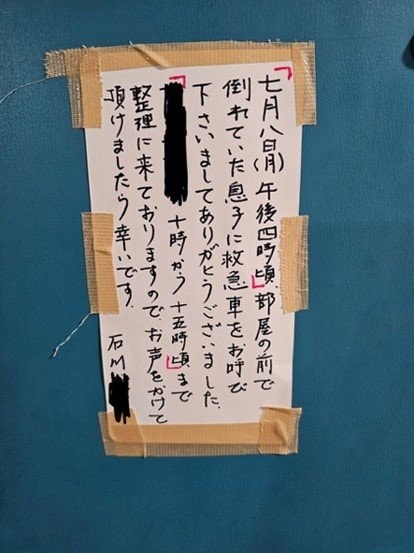 七月八日(月)午後四時頃、部屋の前で
倒れていた息子に救急車をお呼び
下さいましてありがとうございました。
十時から十五時頃まで
整理に来ておりますので、お声をかけて
頂けましたら幸いです。
石川